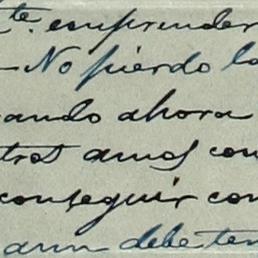 te. emprender
- No pierdo la
ando ahora
tros amos con
conseguir con
aun debe ten